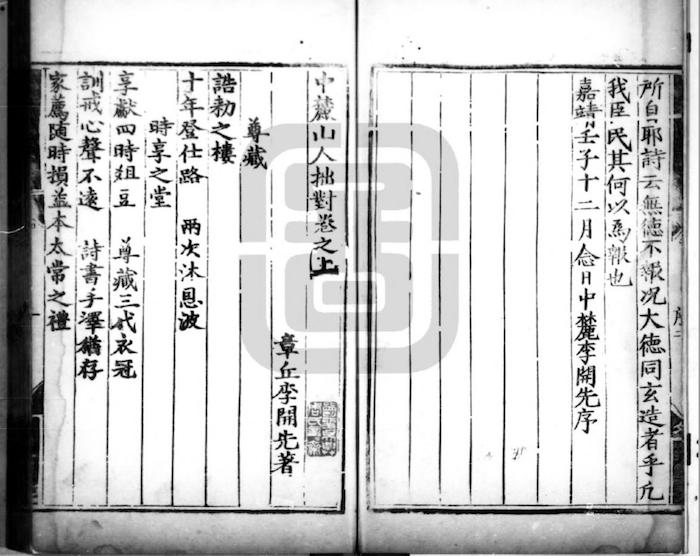 所自耶詩云無德不報况大德同玄造者乎凡
我臣民其何以為報也
嘉靖壬子十二月念日中麓李開先序
序二
中麓山人拙對卷之上
章丘李開先著
尊藏
誥勑之樓
十年登仕路 兩次沐恩波
時享之堂
享獻四時俎豆 尊藏三代衣冠
訓戒心聲不遠 詩書手澤猶存
家薦随時損益本太常之禮